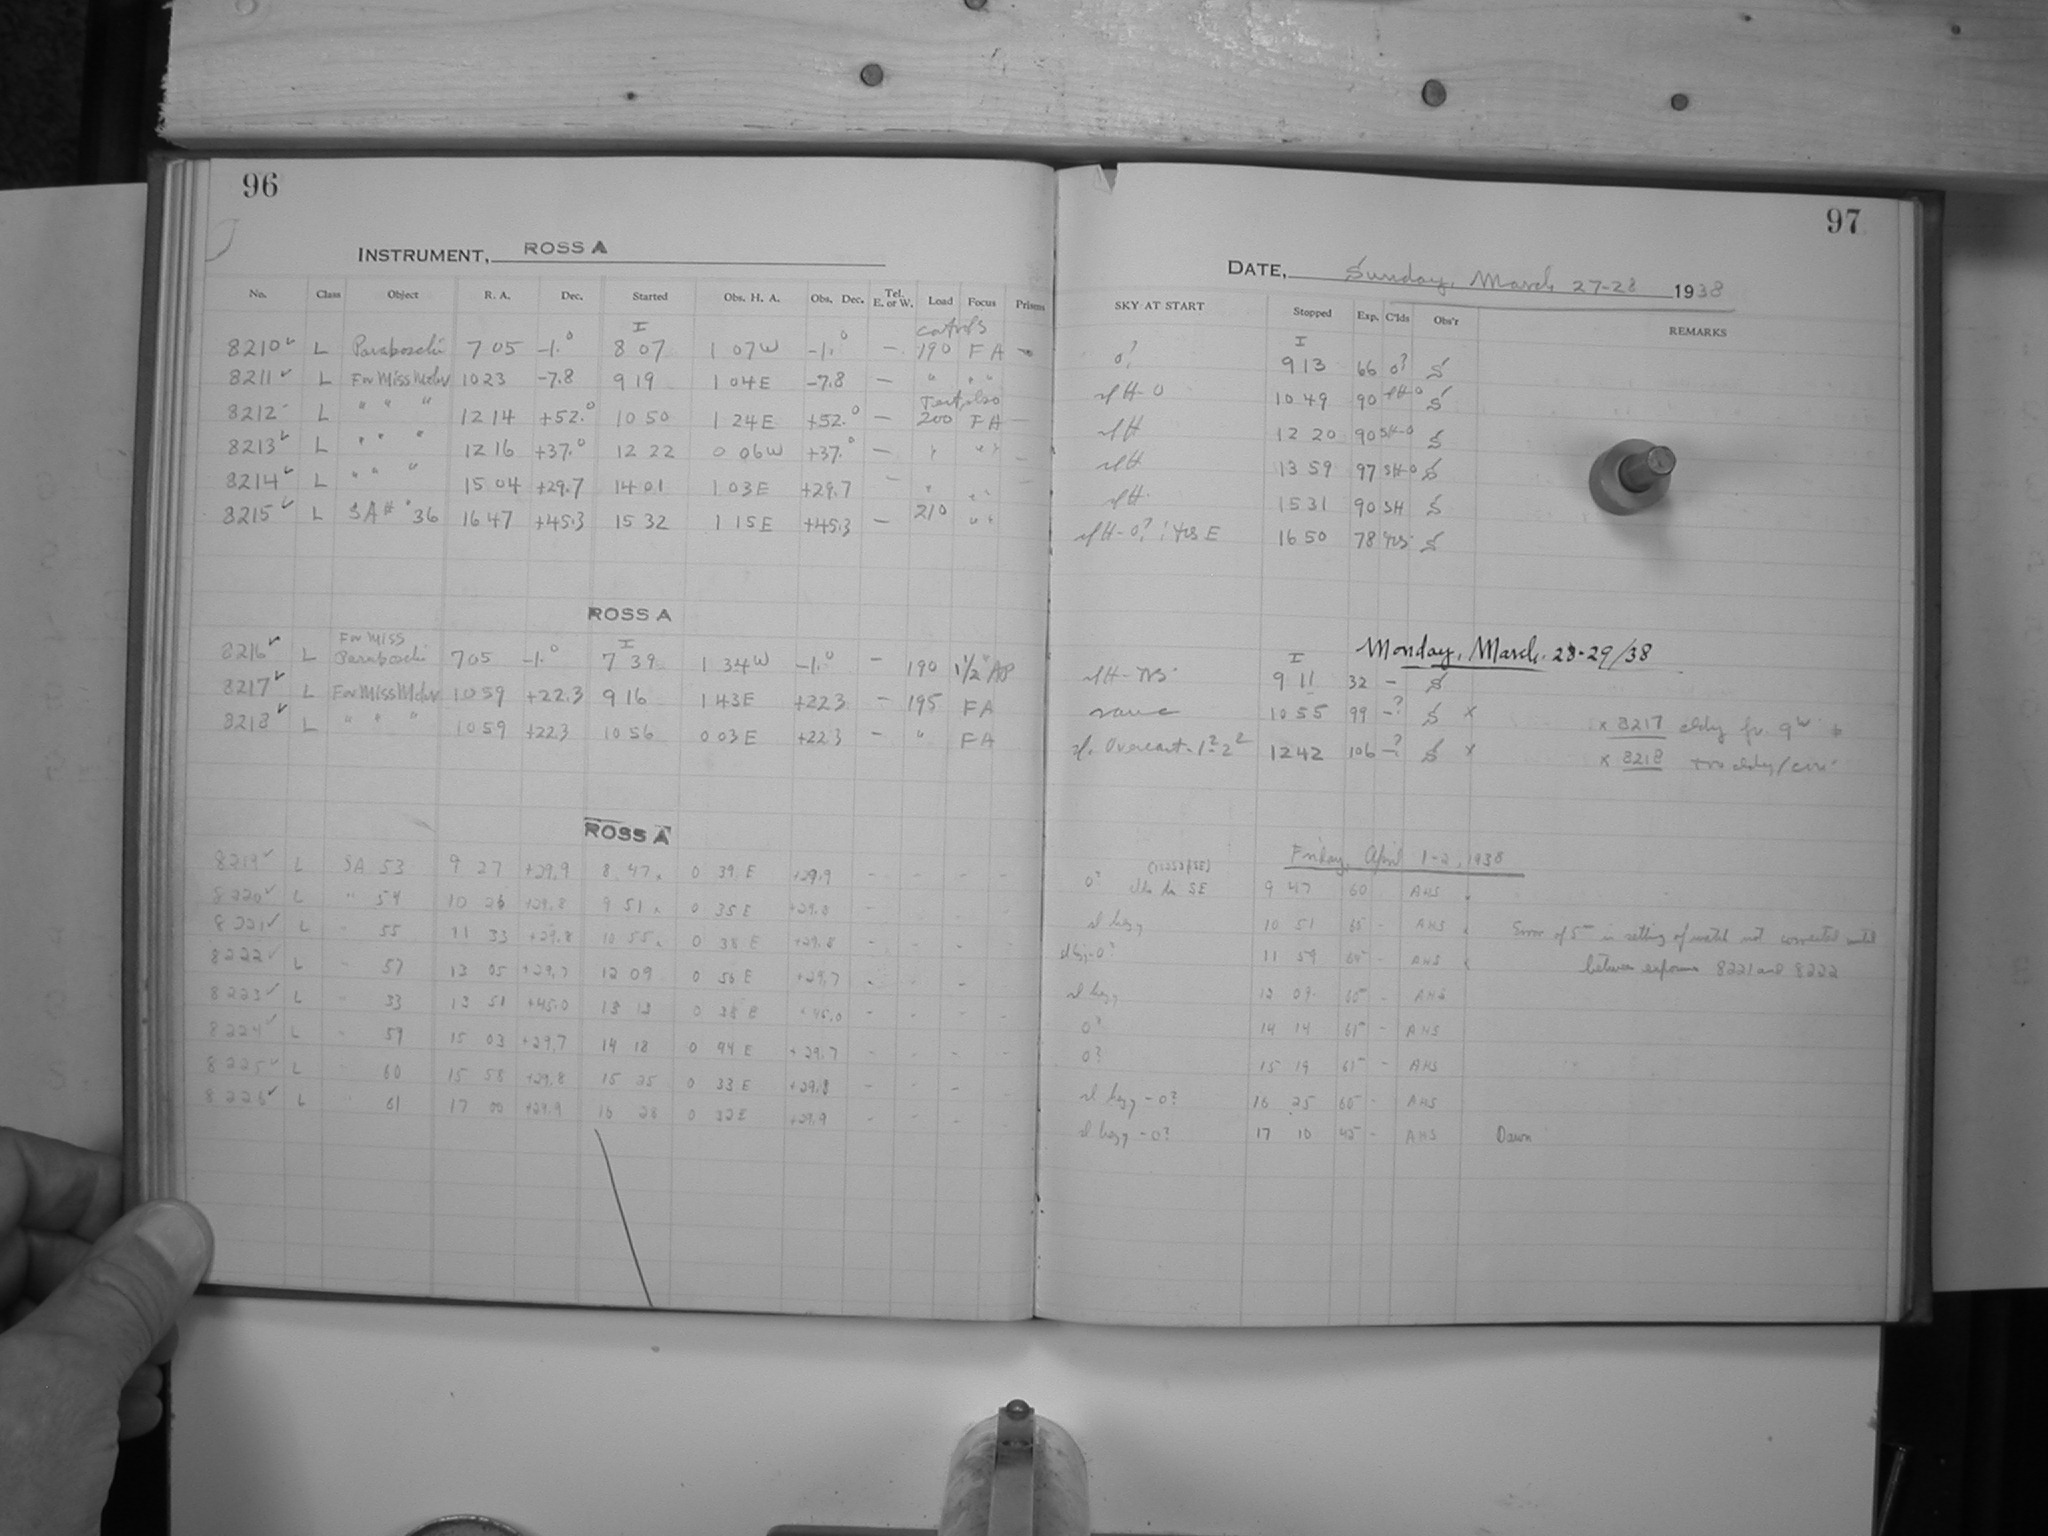 96
INSTRUMENT, ROSS A
No. Class Object R. A. Dec. Started Obs. H. A. Obs. Dec. Tel. E. or W. Load Focus Prisms
I
8210 L 7 05 -1.° 8 07 1 07 W -1.° - 190 F A -
8211 L For Miss 10 23 -7.8 9 19 1 04 E -7.8 - " " "
8212 L " " " 12 14 +52.° 10 50 1 24 E +52.° - 200 F A
8213 L " " " 12 16 +37.° 12 22 0 06 W +37.° - " " "
8214 L " " " 15 04 +29.7 14 01 1 03 E +29.7 - " " "
8215 L SA # 36 16 47 +45.3 15 32 1 15 E +45.3 - 210 " "
ROSS A
For Miss I
8216 L 7 05 -1.° 7 39 1 34 W -1.° - 190 1½"
8217 L For Miss 10 59 +22.3 9 16 1 43 E +22.3 - 195 F A
8218 L " " " 10 59 +22.3 10 56 0 03 E +22.3 - " F A
ROSS A
8219 L SA 53 9 27 +29.9 8 47 0 39 E +29.9 - - - -
8220 L " 54 10 26 +29.8 9 51 0 35 E +29.8 - - - -
8221 L " 55 11 33 +29.8 10 55 0 38 E +29.8 - - - -
8222 L " 57 13 05 +29.7 12 09 0 56 E +29.7 - - -
8223 L " 33 13 51 +45.0 13 13 0 38 E +45.0 - - - -
8224 L " 59 15 03 +29.7 14 18 0 44 E +29.7 - - - -
8225 L " 60 15 58 +29.8 15 25 0 33 E +29.8 - - -
8226 L " 61 17 00 +29.9 16 28 0 32 E +29.9 - - - -
97
DATE, Sunday, March 27-28 1938
SKY AT START Stopped Exp. C'lds Obs'r REMARKS
I
0? 9 13 66 0? S
sl H-0 10 49 90 S
sl H 12 20 90 SH-0 S
sl H 13 59 97 SH-0 S
sl H 15 31 90 SH S
sl H-0? E 16 50 78 S
Monday, March 28-29/38
I
sl H- 9 11 32 - S
same 10 55 99 -? S x x 8217 cldy fr. 9
Overcast 12 42 106 -? S x x 8218
Friday, April 1-2, 1938
0? SE 9 47 60 AHS
sl hazy 10 51 60 - AHS Error of 5m in setting of watch not corrected until
11 59 64 - AHS between exposures 8221 and 8222
sl hazy 13 09 60 - AHS
0? 14 14 61 - AHS
0? 15 19 61 - AHS
sl hazy - 0? 16 25 60 - AHS
sl hazy - 0? 17 10 42 - AHS Dawn